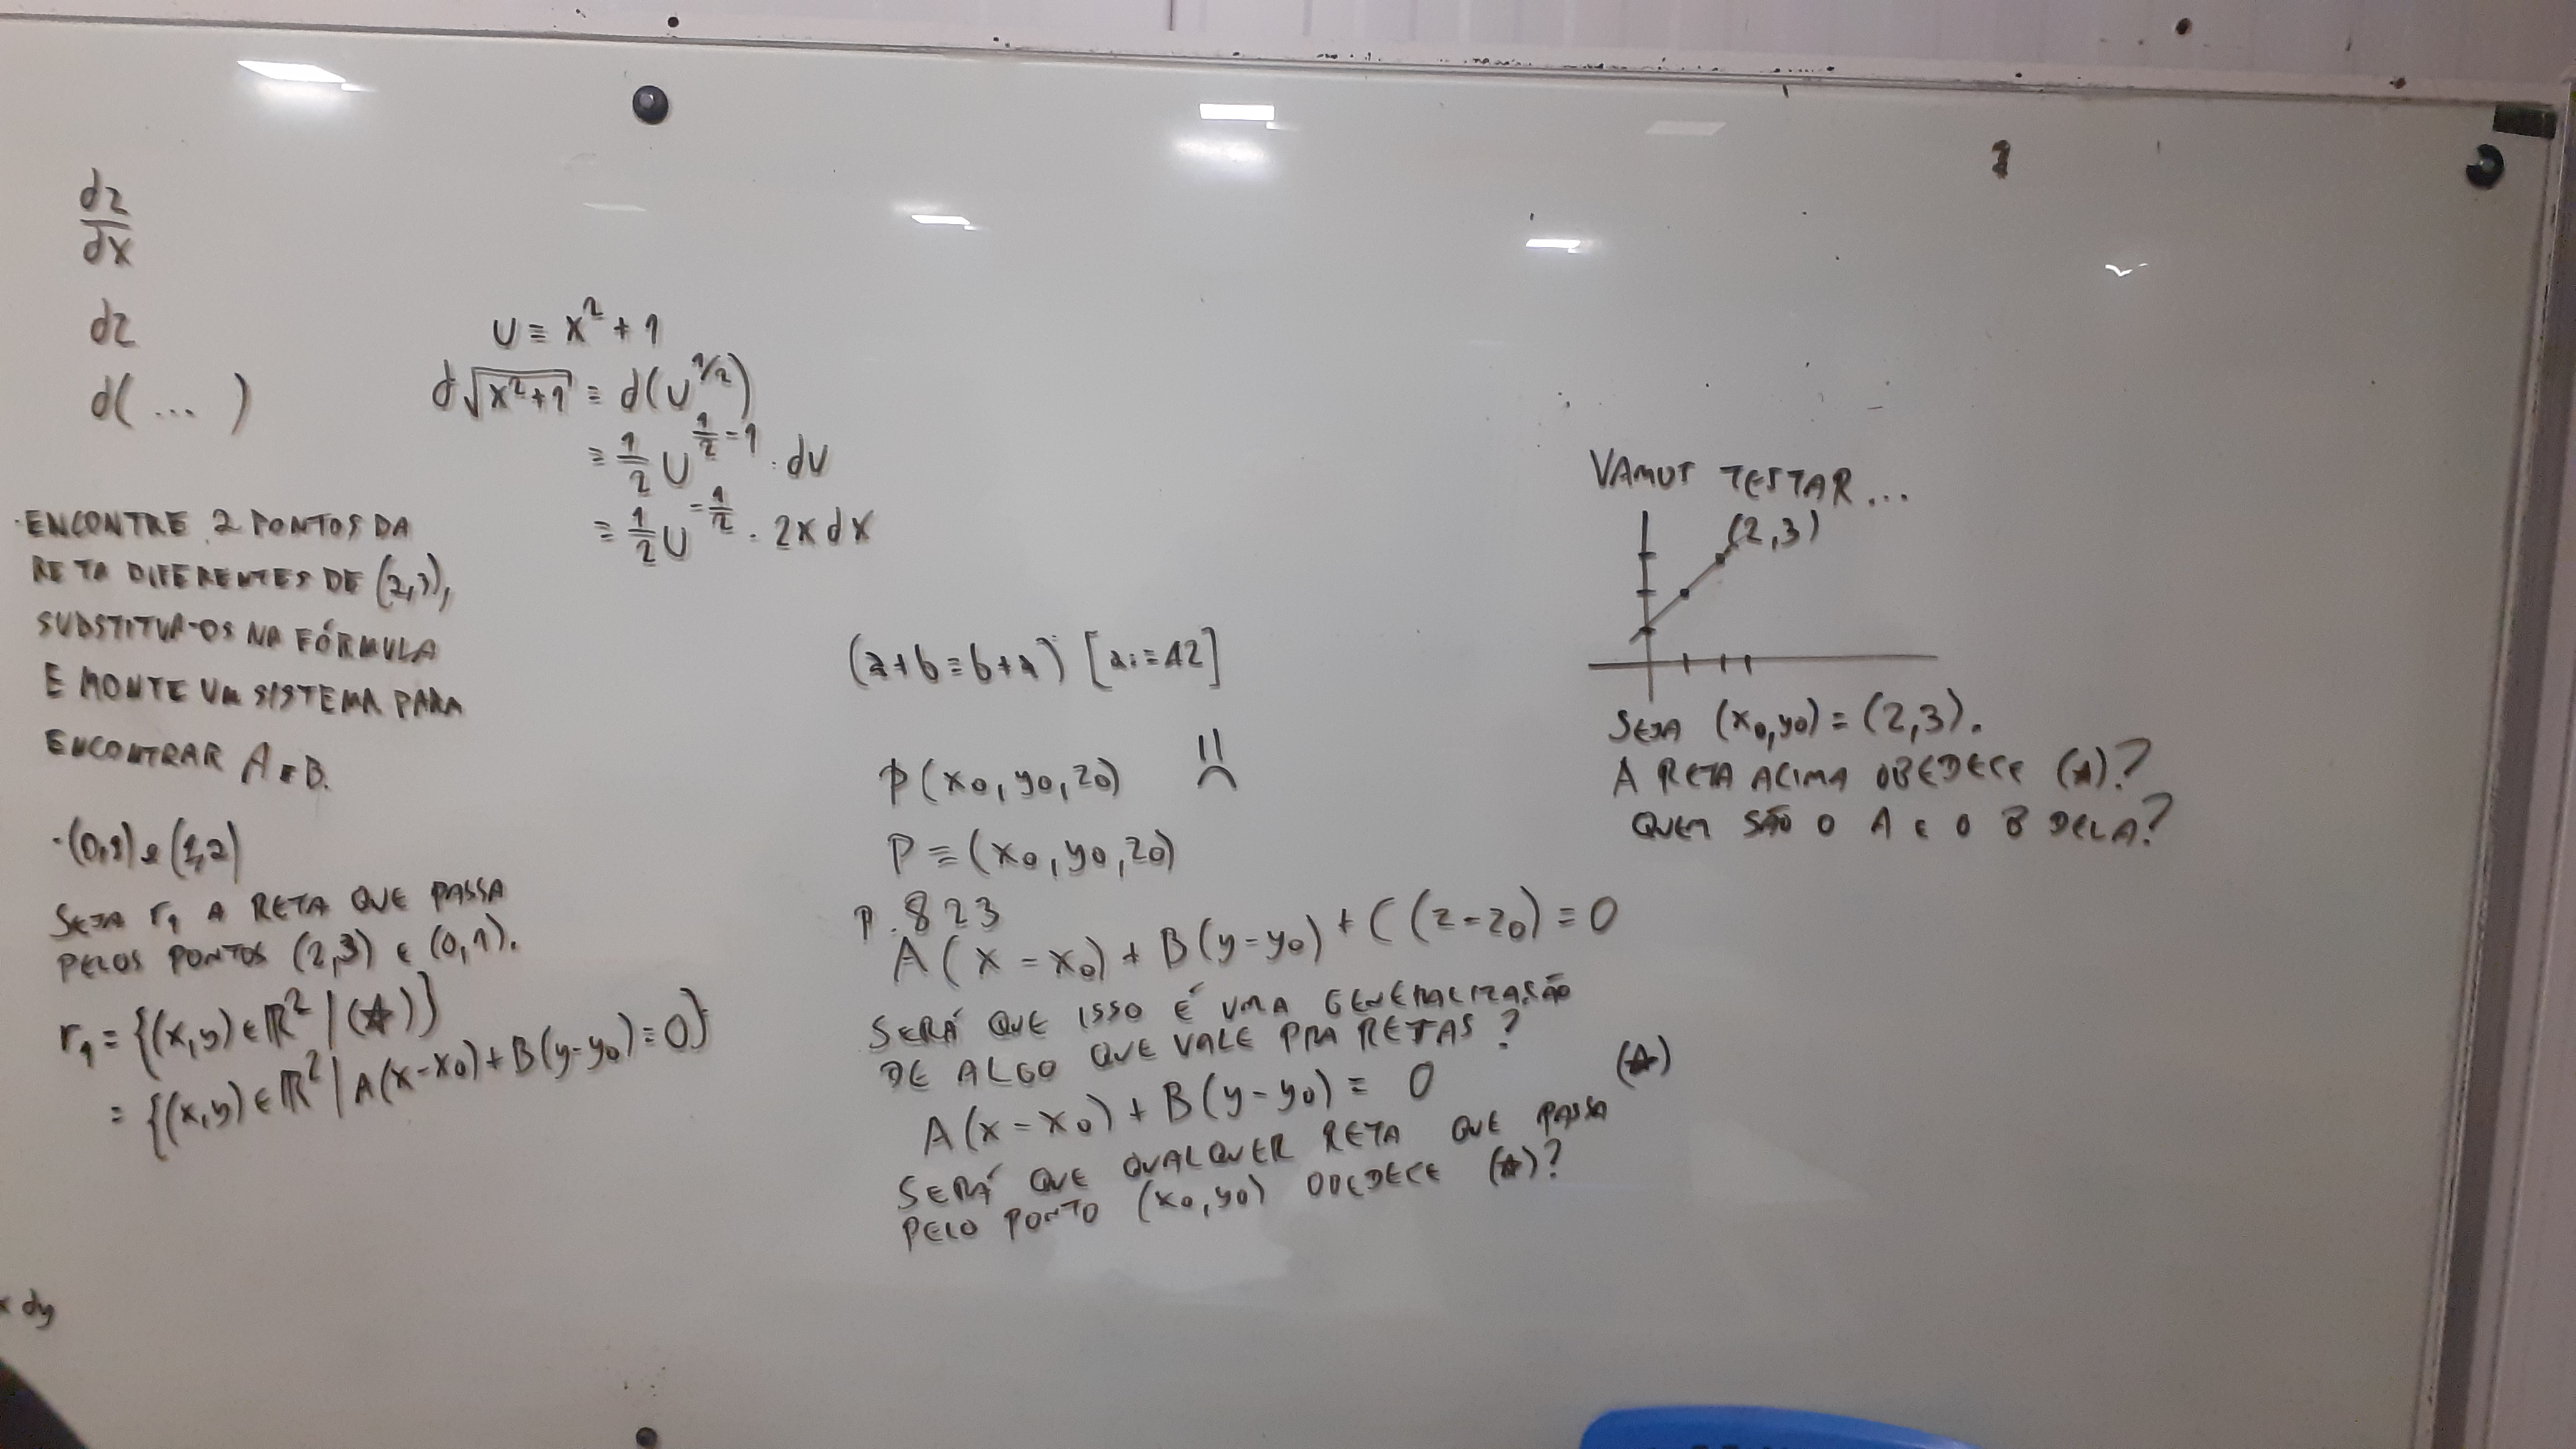 dz
dx
dz
d(...)
·ENCONTRE 2 PONTOS DA
RETA DIFERENTES DE (2,3),
SUBSTITUA-OS NA FÓRMULA
E MONTE UM SISTEMA PARA
ENCONTRAR A E B.
·(0,1) e (1,2)
SEJA r₁ A RETA QUE PASSA
PELOS PONTOS (2,3) E (0,1).
r₁ = {(x,y) ∈ ℝ² | (★)}
= {(x,y) ∈ ℝ² | A(x-x₀) + B(y-y₀) = 0}
x dy
U = x² + 1
d√(x²+1) = d(U^1/2)
= 1/2 U^(1/2 - 1) · dU
= 1/2 U^(-1/2) · 2x dx
(a+b=b+a) [a:=42]
P(x₀, y₀, z₀) :(
P = (x₀, y₀, z₀)
P. 823
A(x-x₀) + B(y-y₀) + C(z-z₀) = 0
SERÁ QUE ISSO É UMA GENERALIZAÇÃO
DE ALGO QUE VALE PRA RETAS?
A(x-x₀) + B(y-y₀) = 0 (★)
SERÁ QUE QUALQUER RETA QUE PASSA
PELO PONTO (x₀, y₀) OBEDECE (★)?
VAMOS TESTAR...
(2,3)
SEJA (x₀, y₀) = (2,3).
A RETA ACIMA OBEDECE (★)?
QUEM SÃO O A E O B DELA?